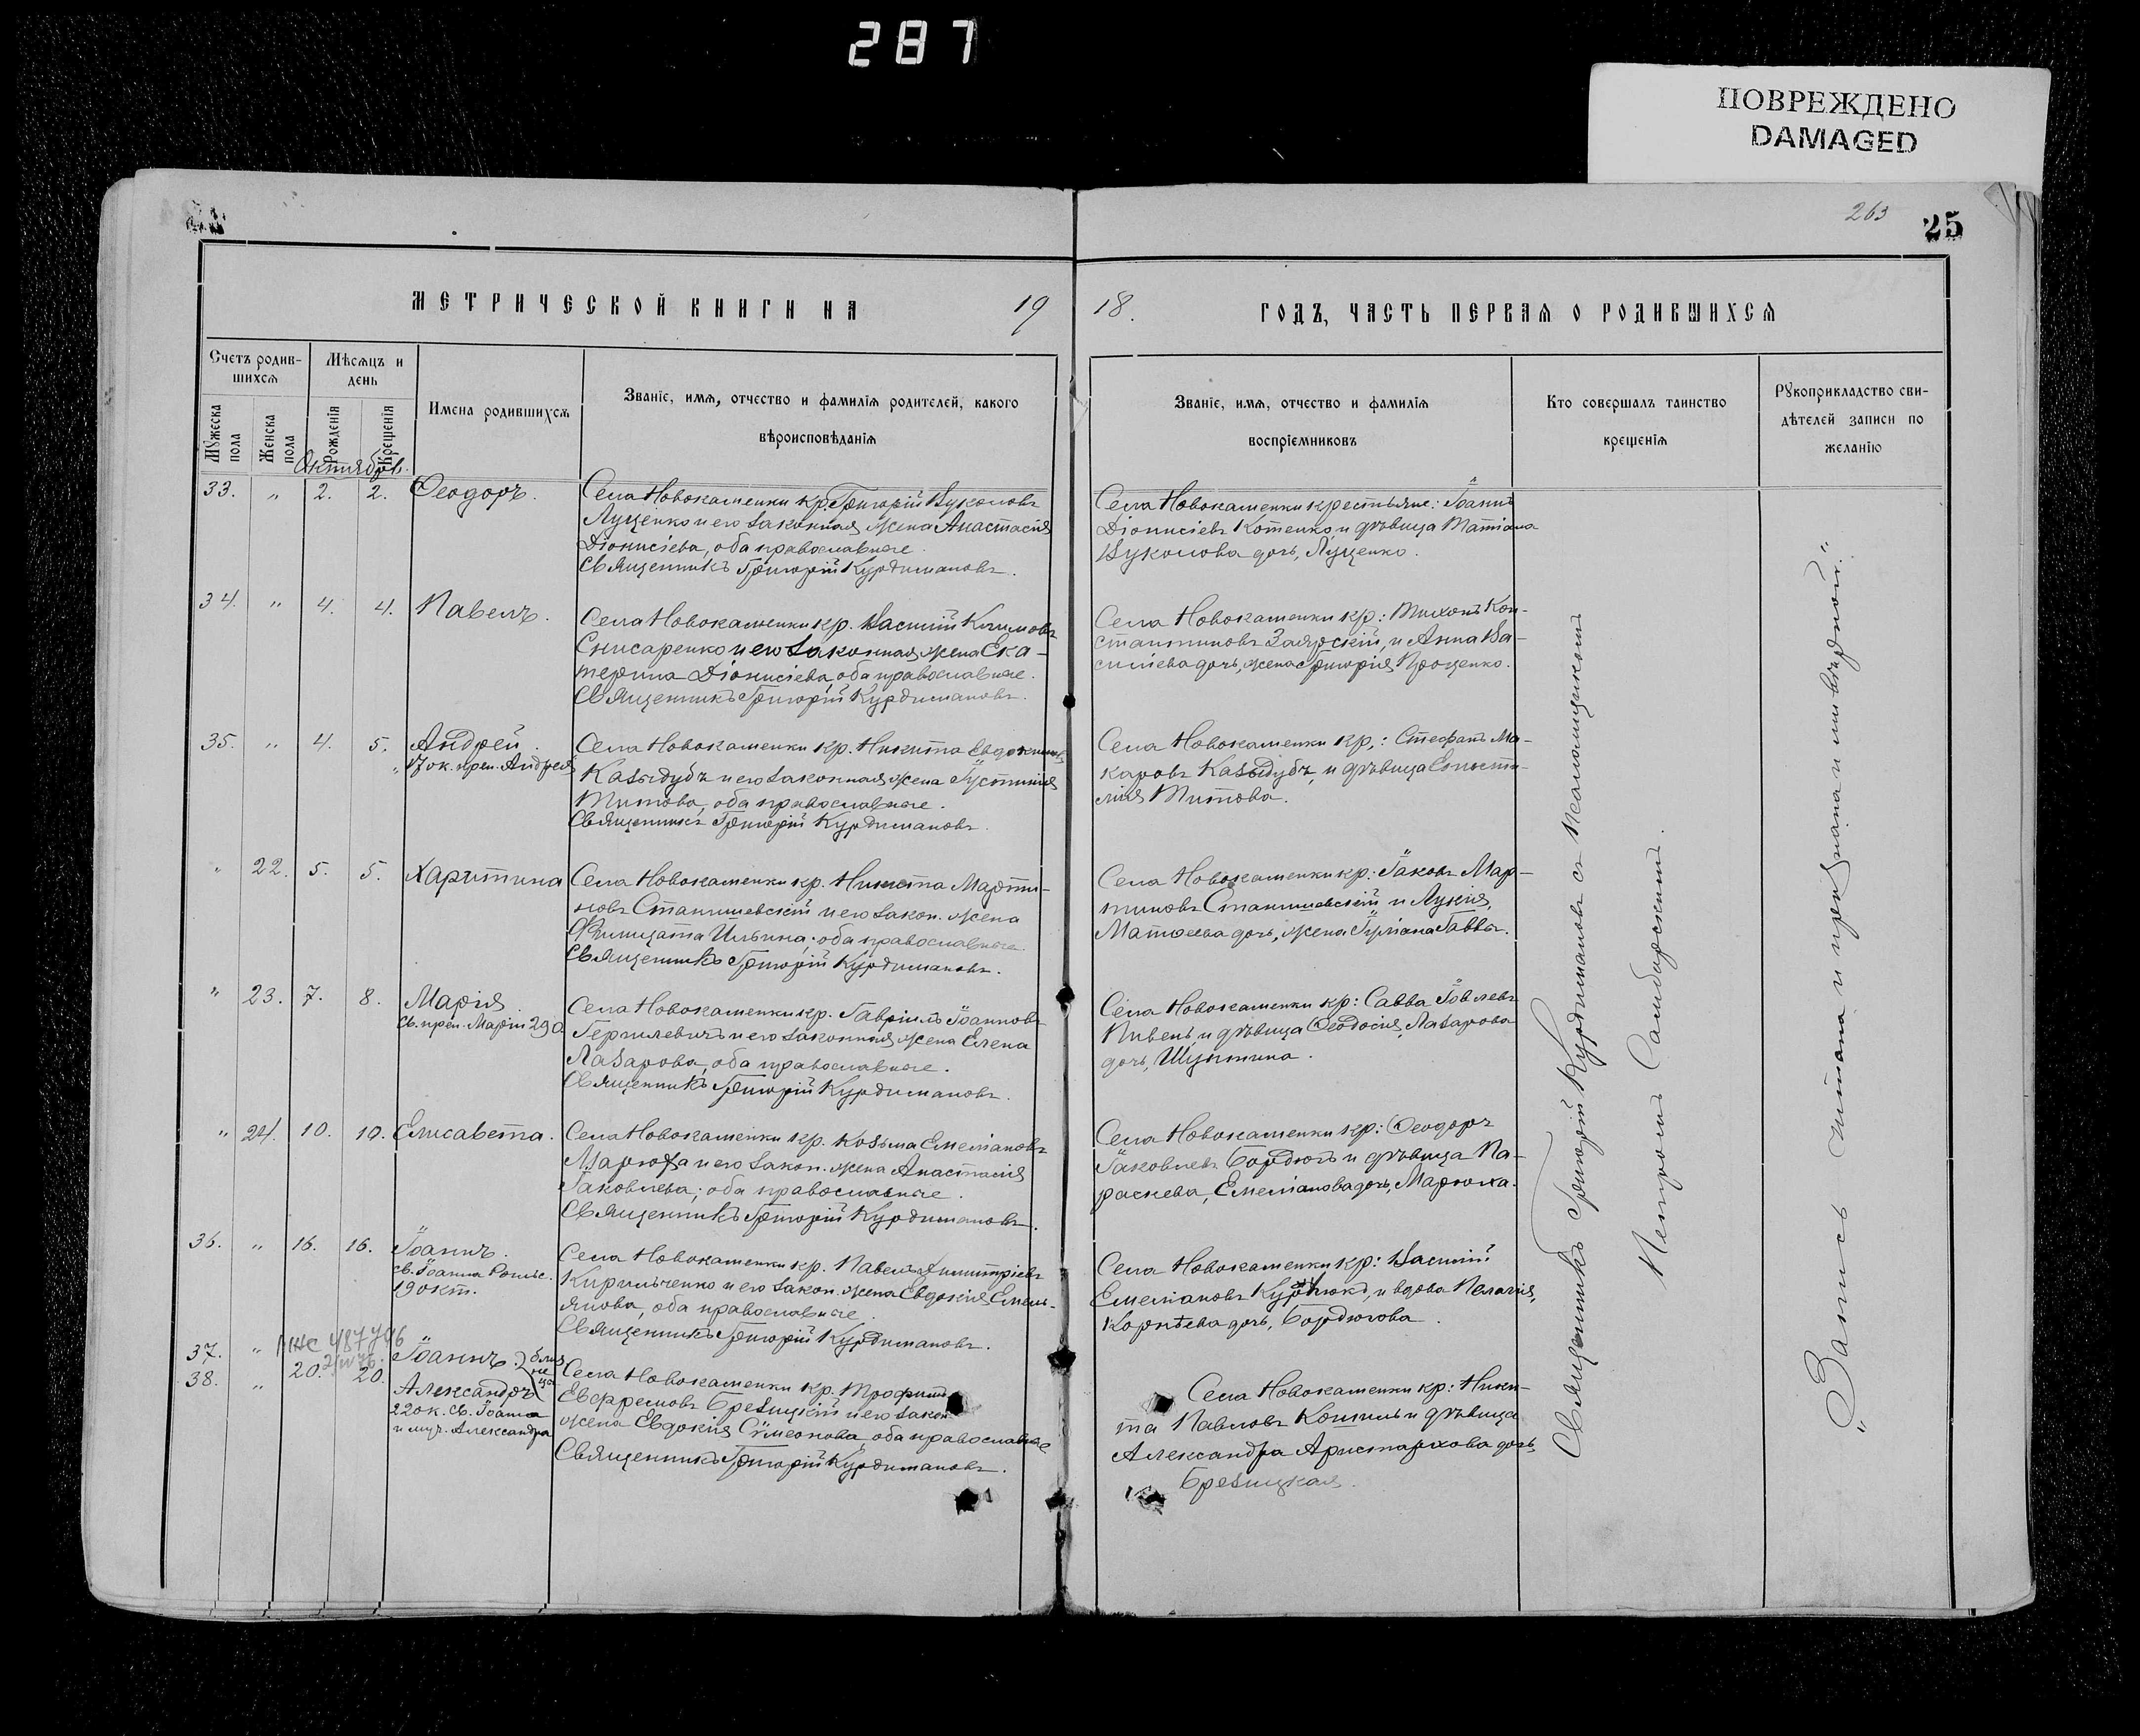 287
ПОВРЕЖДЕНО
DAMAGED
263
25
МЕТРИЧЕСКОЙ КНИГИ НА 19
18. ГОДЪ, ЧАСТЬ ПЕРВАЯ О РОДИВШИХСЯ
Счетъ родив-
шихся
Мѣсяцъ и
день
Мужеска
пола
Женска
пола
Рожденія
Крещенія
Имена родившихся
Званіе, имя, отчество и фамилія родителей, какого
вѣроисповѣданія
Званіе, имя, отчество и фамилія
воспріемниковъ
Кто совершалъ таинство
крещенія
Рукоприкладство сви-
дѣтелей записи по
желанію
Октябрь.
33. " 2. 2. Ѳеодоръ.
Села Новокаменки кр. Григорій Вуколовъ
Луценко и его законная жена Анастасія
Діонисіева, оба православные.
Священникъ Григорій Курдимановъ.
Села Новокаменки крестьяне: Іоаннъ
Діонисіевъ Котенко, и дѣвица Татіана
Вуколова дочь, Луценко.
34. " 4. 4. Павелъ.
Села Новокаменки кр. Василій Климовъ
Снисаренко и его законная жена Ека-
терина Діонисіева, оба православные.
Священникъ Григорій Курдимановъ.
Села Новокаменки кр.: Тихонъ Кон-
стантиновъ Заярскій, и Анна Ва-
силіева дочь, жена Григорія Проценко.
35. " 4. 5. Андрей.
17 ок. преп. Андрея
Села Новокаменки кр. Никита Евдокимовъ
Казыдубъ и его законная жена Іустинія
Титова, оба православные.
Священникъ Григорій Курдимановъ.
Села Новокаменки кр.: Стефанъ Ма-
каровъ Казыдубъ, и дѣвица
Титова.
" 22. 5. 5. Харитина
Села Новокаменки кр. Никита Марти-
новъ Станишевскій и его закон. жена
Филицата Ильина; оба православные.
Священникъ Григорій Курдимановъ.
Села Новокаменки кр.: Іаковъ Мар-
тиновъ Станишевскій и Лукія,
Матѳеева дочь, жена Іуліана Саввы.
" 23. 7. 8. Марія.
Св. преп. Маріи 29 о
Села Новокаменки кр. Гавріилъ Іоанновъ
Гермилевичъ и его законная жена Елена
Лазарова, оба православные.
Священникъ Григорій Курдимановъ.
Села Новокаменки кр.: Савва Іовлевъ
Пивень, и дѣвица Ѳеодосія, Лазарова
дочь,
" 24. 10. 10. Елисавета.
Села Новокаменки кр. Козьма Емеліановъ
Марюха и его закон. жена Анастасія
Іаковлева; оба православные.
Священникъ Григорій Курдимановъ.
Села Новокаменки кр.: Ѳеодоръ
Іаковлевъ Бордюгъ и дѣвица Па-
раскева, Емеліанова дочь, Марюха.
36. " 16. 16. Іоаннъ.
св. Іоанна Рыльс.
19 окт.
Села Новокаменки кр. Павелъ Димитріевъ
Кирильченко и его закон. жена Евдокія Емель-
янова, оба православные.
Священникъ Григорій Курдимановъ.
Села Новокаменки кр.: Василій
Емеліановъ и вдова Пелагія,
Корнѣева дочь, Бордюгова.
37. " Іоаннъ. близ
не
цы
38. " 20. 20. Александръ
22 ок. св. Іоанна
и муч. Александра
Села Новокаменки кр. Трофимъ
Евфремовъ Брезицкій и его закон.
жена Евдокія Сѵмеонова, оба православные
Священникъ Григорій Курдимановъ.
Села Новокаменки кр.: Ники-
та Павловъ Кошиль и дѣвица
Александра Аристархова дочь,
Брезицкая.
Священникъ Григорій Курдимановъ съ Псаломщикомъ
Петромъ Самборскимъ.
"Запись читана и признана